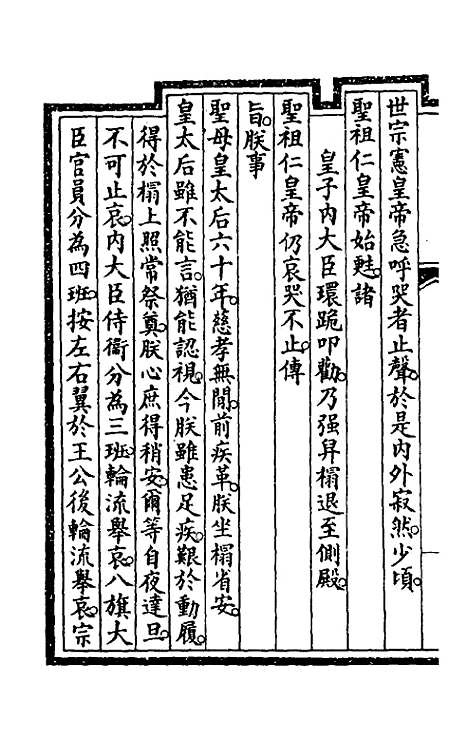 世宗憲皇帝急呼哭者止聲。於是内外寂然。少頃。
聖祖仁皇帝始甦。諸
皇子内大臣環跪叩勸。乃强昇榻退至側殿
聖祖仁皇帝仍哀哭不止。傳
旨。朕事
聖母皇太后六十年。慈孝無間。前疾革。朕坐榻省安。
皇太后雖不能言。猶能認視。今朕雖患足疾。艱於動履。
得於榻上照常祭奠。朕心庶得稍安。爾等自夜達旦。
不可止哀。内大臣侍衞分為三班。輪流舉哀。八旗大
臣官員分為四班。按左右翼於王公後輪流舉哀。宗